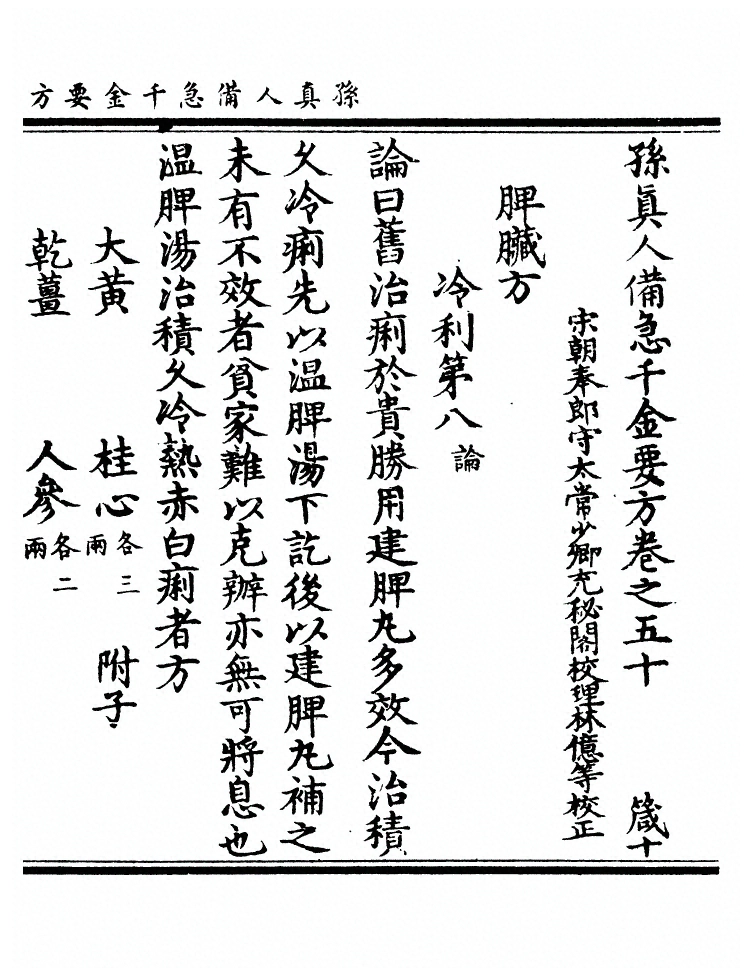 孫真人備急千金要方
孫眞人備急千金要方卷之五十　箴十
宋朝奉郎守太常少卿充秘閣校理林億等校正
脾臟方
冷利第八 論
論曰舊治痢於貴勝用建脾丸多效今治積
久冷痢先以温脾湯下訖後以建脾丸補之
未有不效者貧家難以克辦亦無可將息也
温脾湯治積久冷熱赤白痢者方
大黃　桂心各三兩　附子
乾薑　人參各二兩